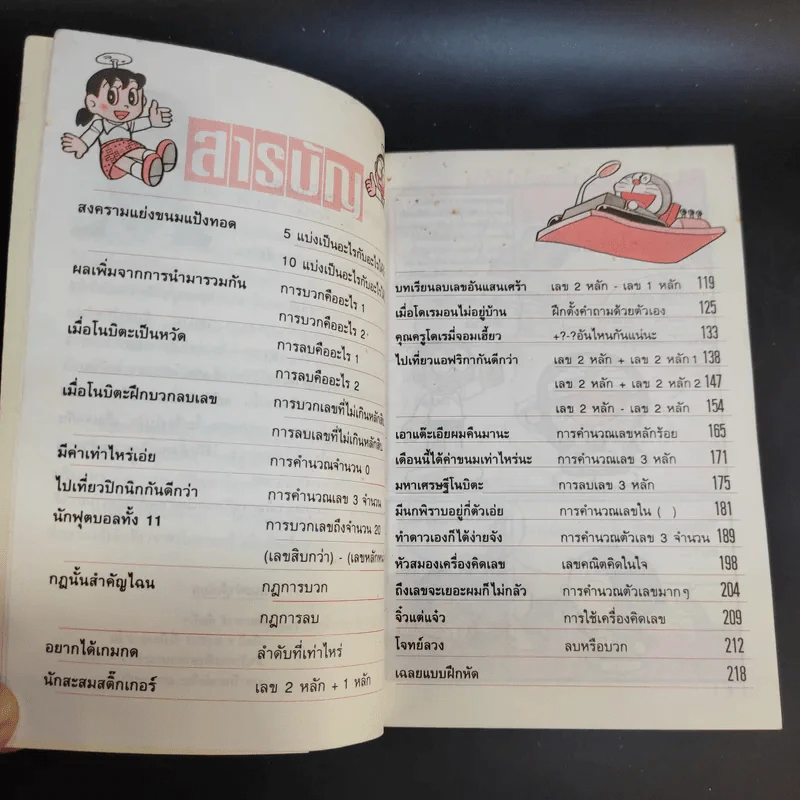 สารบัญ
สงครามแย่งขนมแป้งทอด 5 แบ่งเป็นอะไรกับอะไร
10 แบ่งเป็นอะไรกับอะไร
ผลเพิ่มจากการนำมารวมกัน การบวกคืออะไร 1
การบวกคืออะไร 2
เมื่อโนบิตะเป็นหวัด การลบคืออะไร 1
การลบคืออะไร 2
เมื่อโนบิตะฝึกบวกลบเลข การบวกเลขที่ไม่เกินหลัก
การลบเลขที่ไม่เกินหลัก
มีค่าเท่าไหร่เอ่ย การคำนวณจำนวน 0
ไปเที่ยวปิกนิกกันดีกว่า การคำนวณเลข 3 จำนวน
นักฟุตบอลทั้ง 11 การบวกเลขถึงจำนวน 20
(เลขสิบกว่า) - (เลขหลัก
กฎนั้นสำคัญไฉน กฎการบวก
กฎการลบ
อยากได้เกมกด ลำดับที่เท่าไหร่
นักสะสมสติ๊กเกอร์ เลข 2 หลัก + 1 หลัก
บทเรียนลบเลขอันแสนเศร้า เลข 2 หลัก - เลข 1 หลัก 119
เมื่อโดเรมอนไม่อยู่บ้าน ฝึกตั้งคำถามด้วยตัวเอง 125
คุณครูโดเรมี่จอมเฮี้ยว +?-?อันไหนกันแน่นะ 133
ไปเที่ยวแอฟริกากันดีกว่า เลข 2 หลัก + เลข 2 หลัก 1 138
เลข 2 หลัก + เลข 2 หลัก 2 147
เลข 2 หลัก - เลข 2 หลัก 154
เอาแต๊ะเอียผมคืนมานะ การคำนวณเลขหลักร้อย 165
เดือนนี้ได้ค่าขนมเท่าไหร่นะ การคำนวณเลข 3 หลัก 171
มหาเศรษฐีโนบิตะ การลบเลข 3 หลัก 175
มีนกพิราบอยู่กี่ตัวเอ่ย การคำนวณเลขใน ( ) 181
ทำดาวเองก็ได้ง่ายจัง การคำนวณตัวเลข 3 จำนวน 189
หัวสมองเครื่องคิดเลข เลขคณิตคิดในใจ 198
ถึงเลขจะเยอะผมก็ไม่กลัว การคำนวณตัวเลขมากๆ 204
จิ๋วแต่แจ๋ว การใช้เครื่องคิดเลข 209
โจทย์ลวง ลบหรือบวก 212
เฉลยแบบฝึกหัด 218